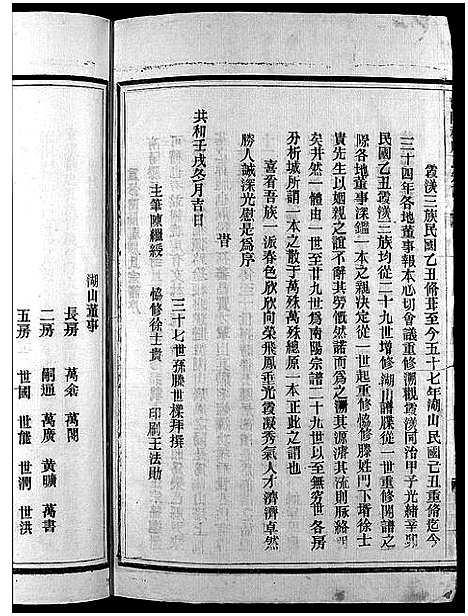 霞漢三族民國乙丑修非至今五十七年湖山民國己丑重脩迄今
三十四年各地董事報本心切會議重修溯觀霞漢同治甲子光緒辛卯
民國乙丑霞漢三族均從二十九世增修湖山譜牒從一世重修閱譜之
際各地董事深鑑一本之親決定從一世起重修恊修滕姓門下壻徐士
貴先生以姻親之誼不辭其勞慨然諾而爲之溯其源濬其流則脉絡門
矣井然一體由一世至廿九世爲南陽宗譜二十九世以至無窮世各房
分析城所謂一本之散于萬殊萬殊總原一本正此之謂也
喜看吾族一派春色欣欣向榮飛鳳垂光霞凝秀氣人才濟濟卓然
勝人誠深光慰是爲序
旹
共和壬戌冬月吉日
三十七世孫滕世樑拜撰
主筆陳繼綬 恊修徐士貴 印刷王法勛
湖山董事
長房 萬余 萬閣
二房 嗣通 萬廣 黃曠 萬書
五房 世國 世能 世潤 世洪